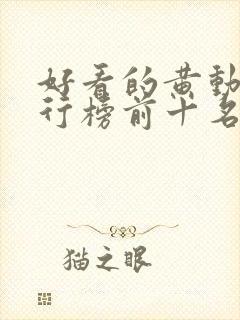 好看的黄動
行榜前十名
猫之眼